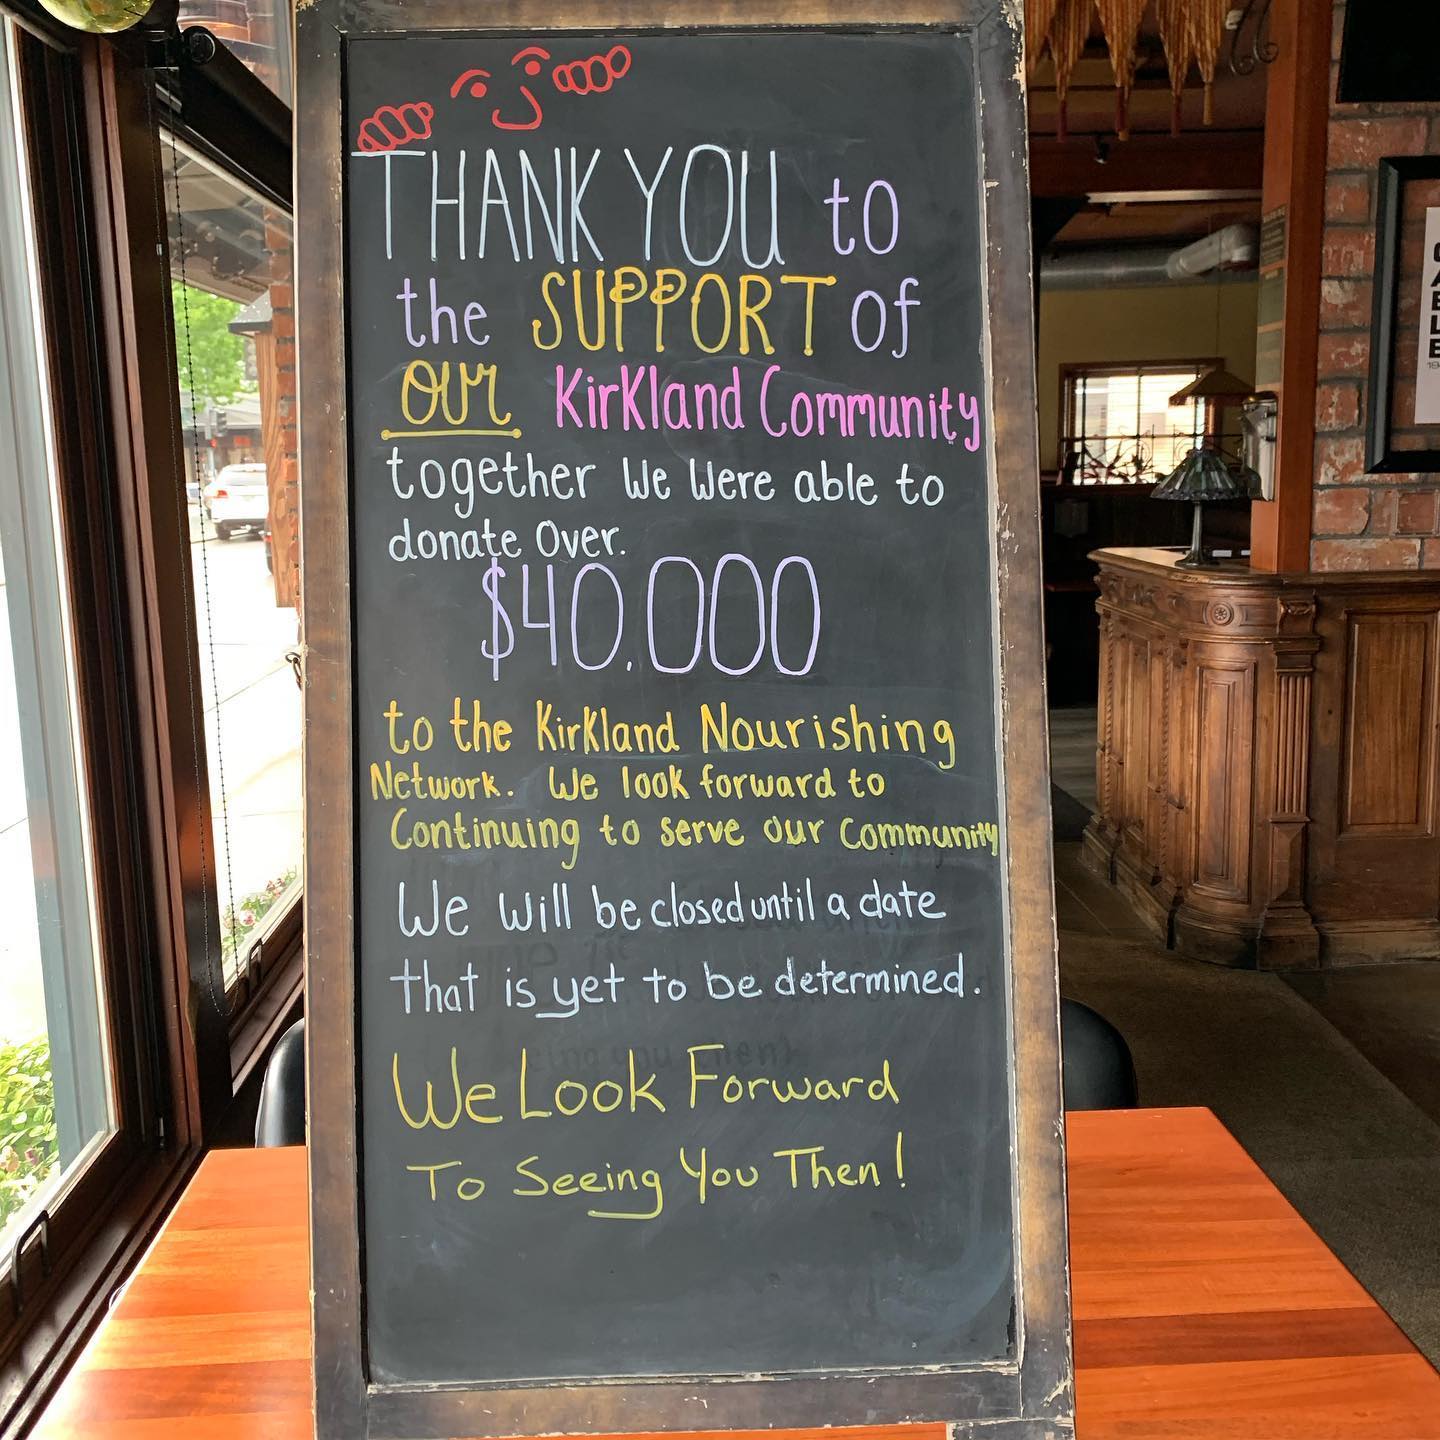 THANK YOU to
the SUPPORT of
our Kirkland Community
together We Were able to
donate Over.
$40.000
to the Kirkland Nourishing
Network. We look forward to
Continuing to serve our Community
We will be closed until a date
that is yet to be determined.
We Look Forward
To Seeing You Then!